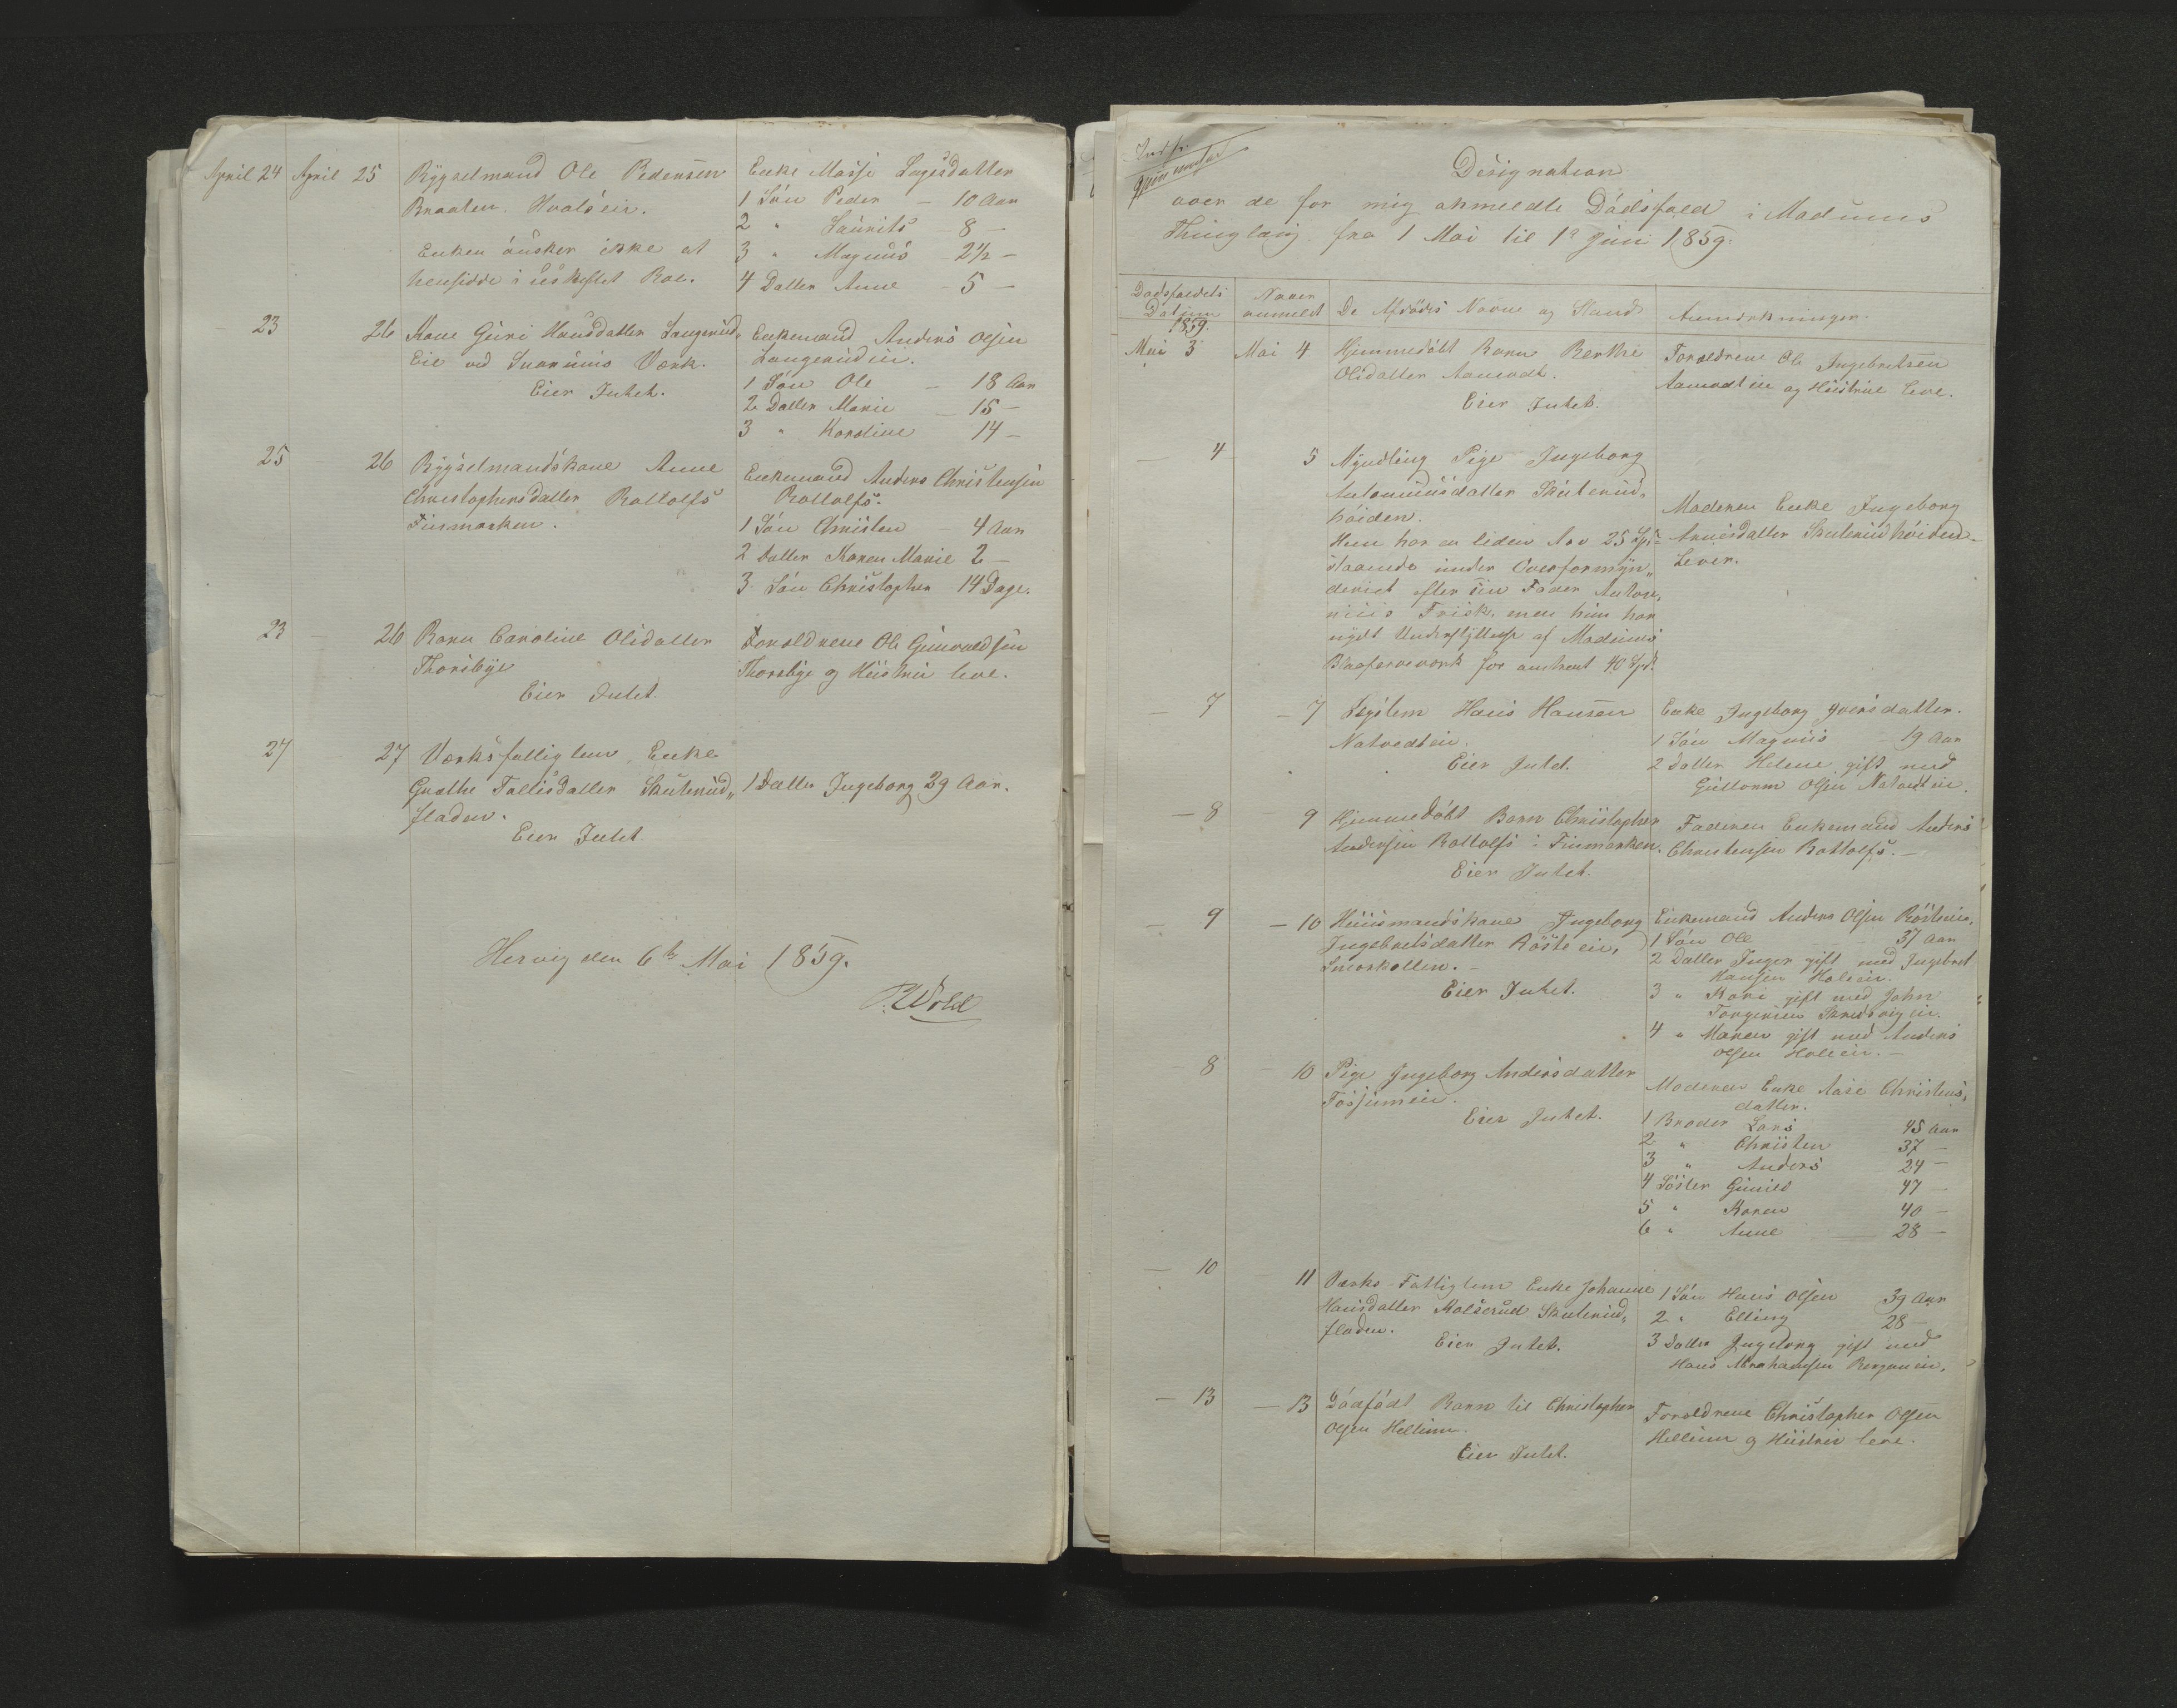 April 24 April 25 Bygselmand Ole Pedersen
Braaten Hvalseie.
Enken ønsker ikke at
hensidde i uskiftet Boe.
Enke Masje Lagesdatter
1 Søn Peder - 10 Aar
2 " Laurits - 8 -
3 " Magnus - 2½ -
4 Datter Anne - 5 -
23 26 Kone Guri Hansdatter Langerud,,
Eie ved Snarums Værk.
Eier Intet.
Enkemand Anders Olsen
Langerudeie.
1 Søn Ole - 18 Aar
2 Datter Marie - 15 -
3 " Karoline 14 -
25 26 Bygselmandskone Anne
Christophersdatter Rollolfs
Finmarken.
Enkemand Anders Christensen
Rollolfs.
1 Søn Christen - 4 Aar
2 Datter Karen Marie 2 -
3 Søn Christopher 14 Dage.
23 - 26 Barn Caroline Olsdatter
Thorsbye
Eier Intet.
Forældrene Ole Gunvaldsen
Thorsbye og Hustru leve.
27 27 Værksfattiglem, Enke
Grethe Tollisdatter Skuterud,,
fladen.
Eier Intet
1 Datter Ingeborg 39 Aar.
Hervig den 6te Mai 1859.
P. Wold
Designation
over de for mig anmeldte Dødsfald i Modums
Thinglaug fra 1 Mai til 1e Juni 1859.
Dødsfaldets
Datum
1859.
Naar
anmeldt
De Afdødes Navn og Stand
Anmærkninger.
Mai 3 Mai 4 Hjemmedøbt Barn Berthe
Olsdatter Aamodt.
Eier Intet.
Forældrene Ole Ingebretsen
Aamodteie og Hustrue leve.
- 4 5 Myndling Pige Ingeborg
Antoniusdatter Skuterud,,
høiden.
Hun har en liden Arv 25 Spd
staaende under Overformyn,,
deriet efter sin Fader Anton,,
nius Frisk, men hun har
nydt Understøttelse af Modums
Blaafarveværk for omtrent 40 Spd.
Moderen Enke Ingeborg
Arnesdatter Skuterudhøiden
Lever.
- 7 - 7 Lægslem Hans Hansen
Natvedteie.
Eier Intet.
Enke Ingeborg Iversdatter.
1 Søn Magnus - 19 Aar
2 Datter Helene gift med
Guttorm Olsen Natvedteie.
- 8 9 Hjemmedøbt Barn Christopher
Andersen Rollolfs i Finmarken.
Eier Intet.
Faderen Enkemand Anders
Christensen Rollolfs. -
- 9 - 10 Huusmandskone Ingeborg
Ingebretsdatter Røsteeie,
Snorkollen. -
Eier Intet.
Enkemand Anders Olsen Røsteeie.
1 Søn Ole - 37 Aar
2 Datter Inger gift med Ingebret
Hansen Holeeie.
3 " Kari gift med John
Torgersen Skredsvigeie.
4 " Maren gift med Anders
Olsen Holeeie. -
- 8 - 10 Pige Ingeborg Andersdatter
Fosjumeie.
Eier Intet.
Moderen Enke Aase Christens,,
datter.
1 Broder Lars 45 Aar
2 " Christen 37 -
3 " Anders 24 -
4 Søster Gunild 47 -
5 " Karen 40 -
6 " Anne 28 -
- 10 11 Værks-Fattiglem Enke Johanne
Hansdatter Kolserud Skuterud,,
fladen.
Eier Intet.
1 Søn Hans Olsen 39 Aar
2 " Elling 28 -
3 Datter Ingeborg gift med
Hans Abrahamsen Berganeie.
- 13 - 13 Dødfødt Barn til Christopher
Olsen Hellum.
Eier Intet.
Forældrene Christopher Olsen
Hellum og Hustru leve.